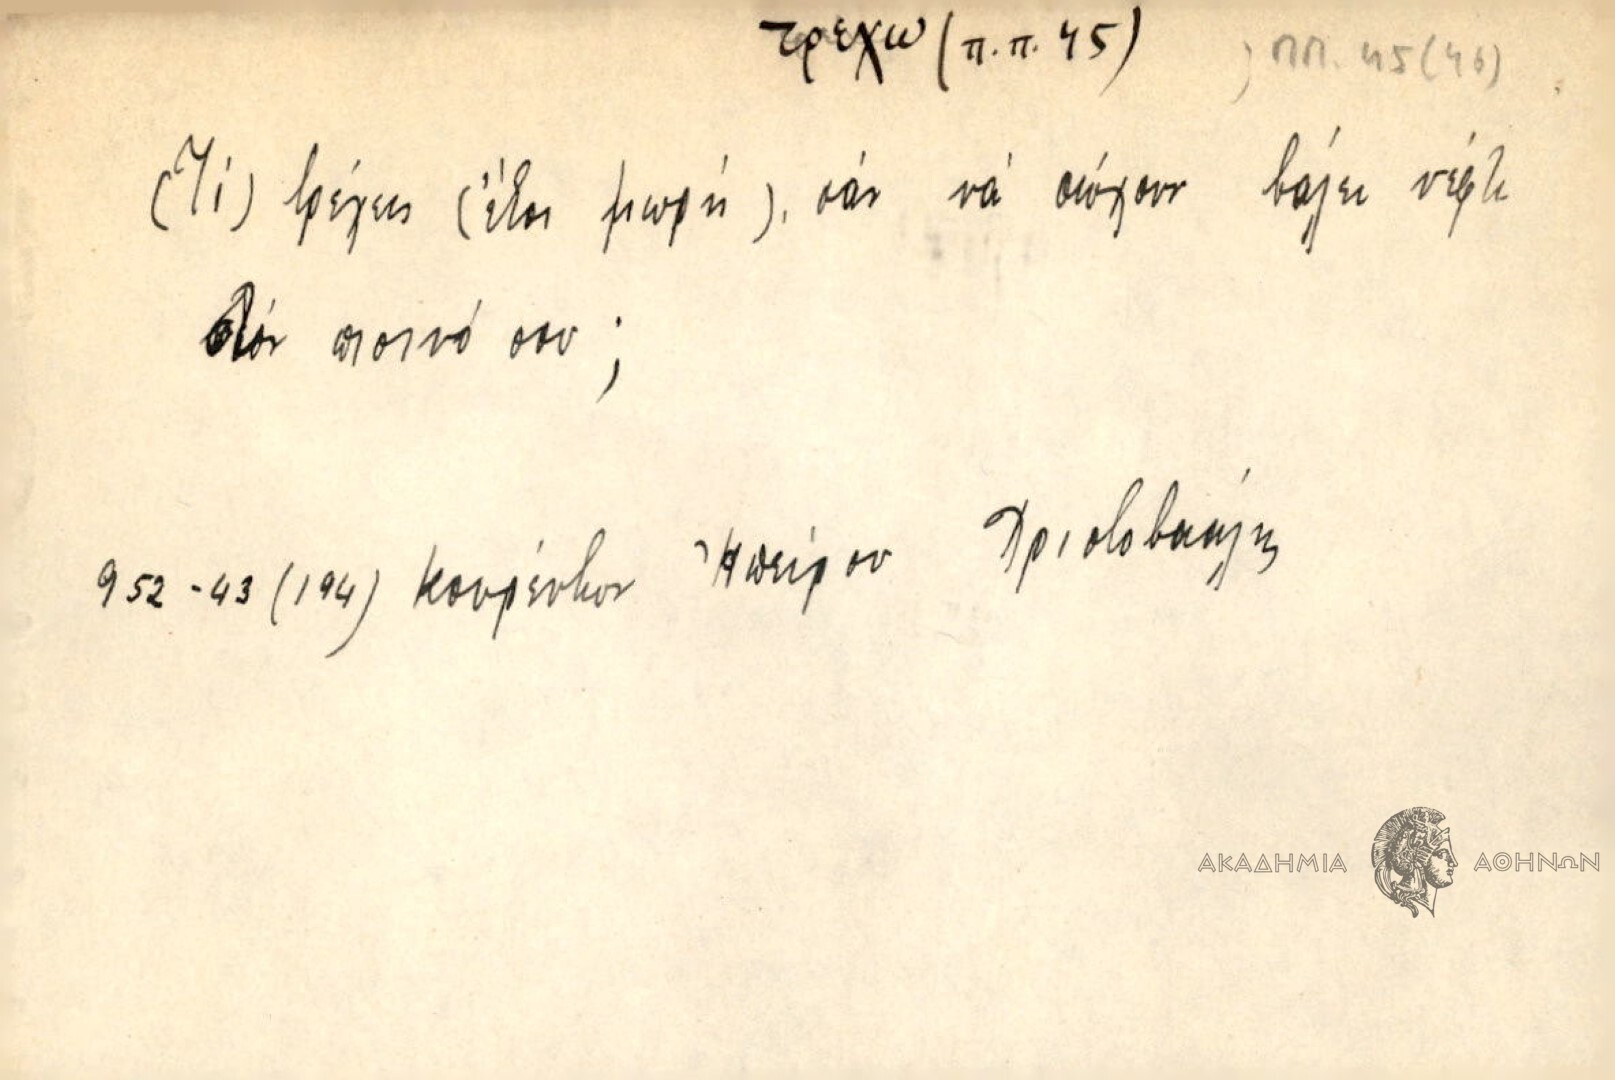 τρεχω (π.π. 45) ) ΠΠ. 45 (46)
(Τί) τρέχεις (ἔτσι μωρή), σάν νά σώχουν βάλει νέφτι
στόν πισινό σου ;
952 - 43 (194) Κουρέντων Ἠπείρου Χριστοβασίλης
ΑΚΑΔΗΜΙΑ ΑΘΗΝΩΝ